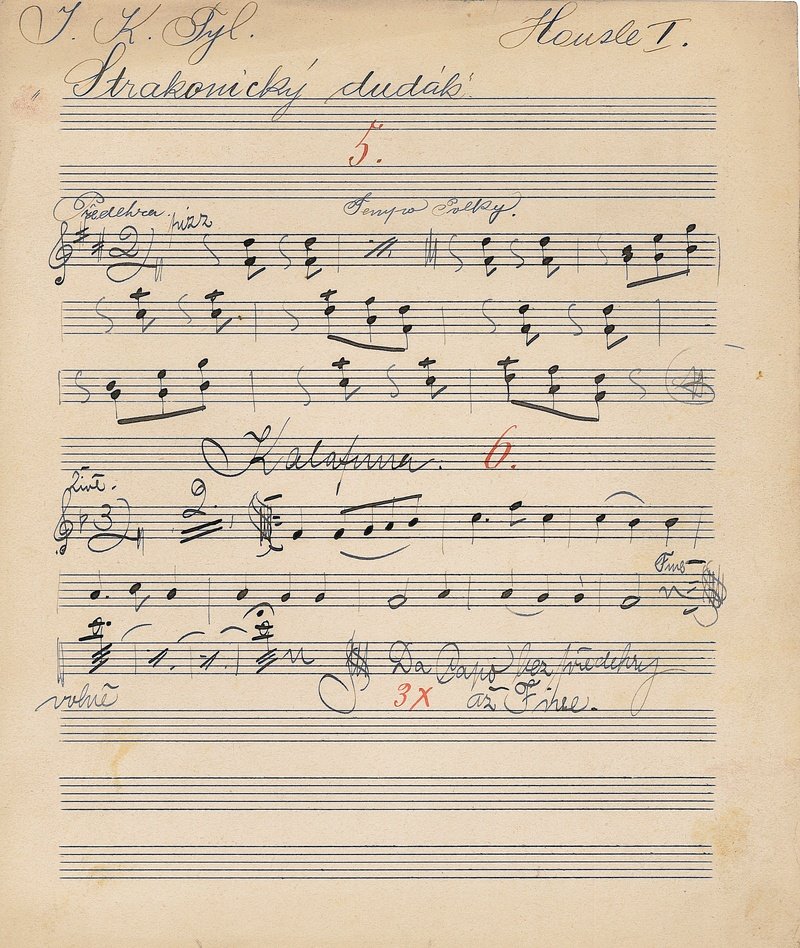 J. K. Tyl.
Housle I.
Strakonický dudák.
5.
Předehra. pizz
Tempo Polky.
2
Kalafuna. 6.
Živě.
3
2.
Fine
Da Capo bez předehry
volně 3X až Fine.